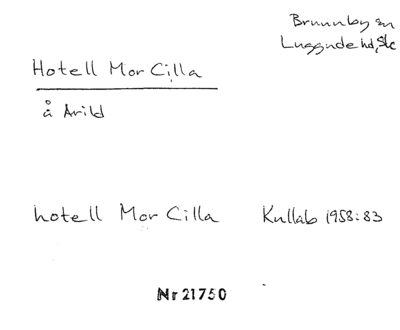 Brunnby sn
Luggude hd, Sk
Hotell Mor Cilla
å Arild
hotell Mor Cilla Kullab 1958:83
Nr 21750